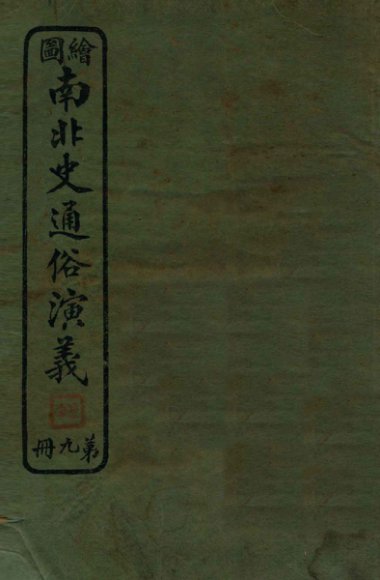 繪圖
南北史通俗演義
第九冊